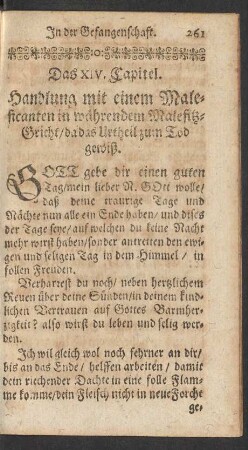 In der Gefangenschaft. 261
Das XIV. Capitel.
Handlung mit einem Male-
ficanten in währendem Malefitz-
Gricht/ da das Urtheil zum Tod
gewiß.
GOTT gebe dir einen guten
Tag/ mein lieber N. GOtt wolle/
daß deine traurige Tage und
Nächte nun alle ein Ende haben/ und dises
der Tage seye/ auf welchen du keine Nacht
mehr wirst haben/ sonder antretten den ewi-
gen und seligen Tag in dem Himmel/ in
follen Freuden.
Verharrest du noch/ neben hertzlichem
Reuen über deine Sünden/ in deinem kind-
lichen Vertrauen auf Gottes Barmher-
zigkeit? also wirst du leben und selig wer-
den.
Ich wil gleich wol noch fehrner an dir/
bis an das Ende/ helffen arbeiten/ damit
dein riechender Dachte in eine folle Flam-
me komme/ dein Fleisch nicht in neue Forcht
ge-